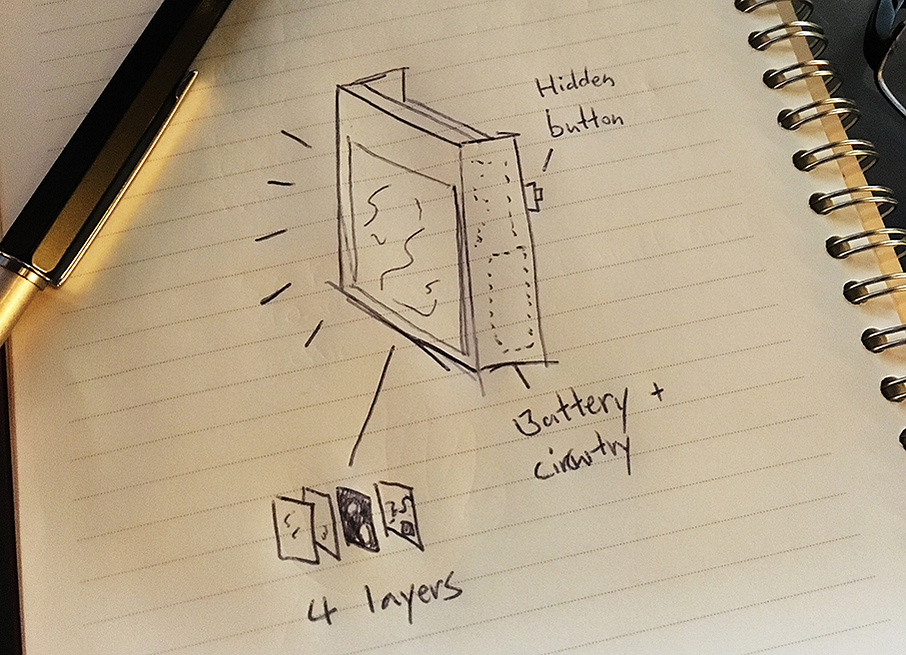 Hidden
button
Battery +
circuitry
4 layers